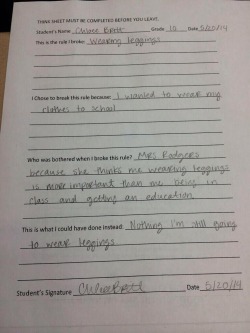 THINK SHEET MUST BE COMPLETED BEFORE YOU LEAVE.
Student's Name Chloe Brett Grade 10 Date 5/20/14
This is the rule I broke: Wearing leggings
I Chose to break this rule because: I wanted to wear my
clothes to school
Who was bothered when I broke this rule? Mrs Rodgers
because she thinks me wearing leggings
is more important than me being in
class and getting an education
This is what I could have done instead: Nothing I'm still going
to wear leggings
Student's Signature Chloe Brett Date 5/20/14